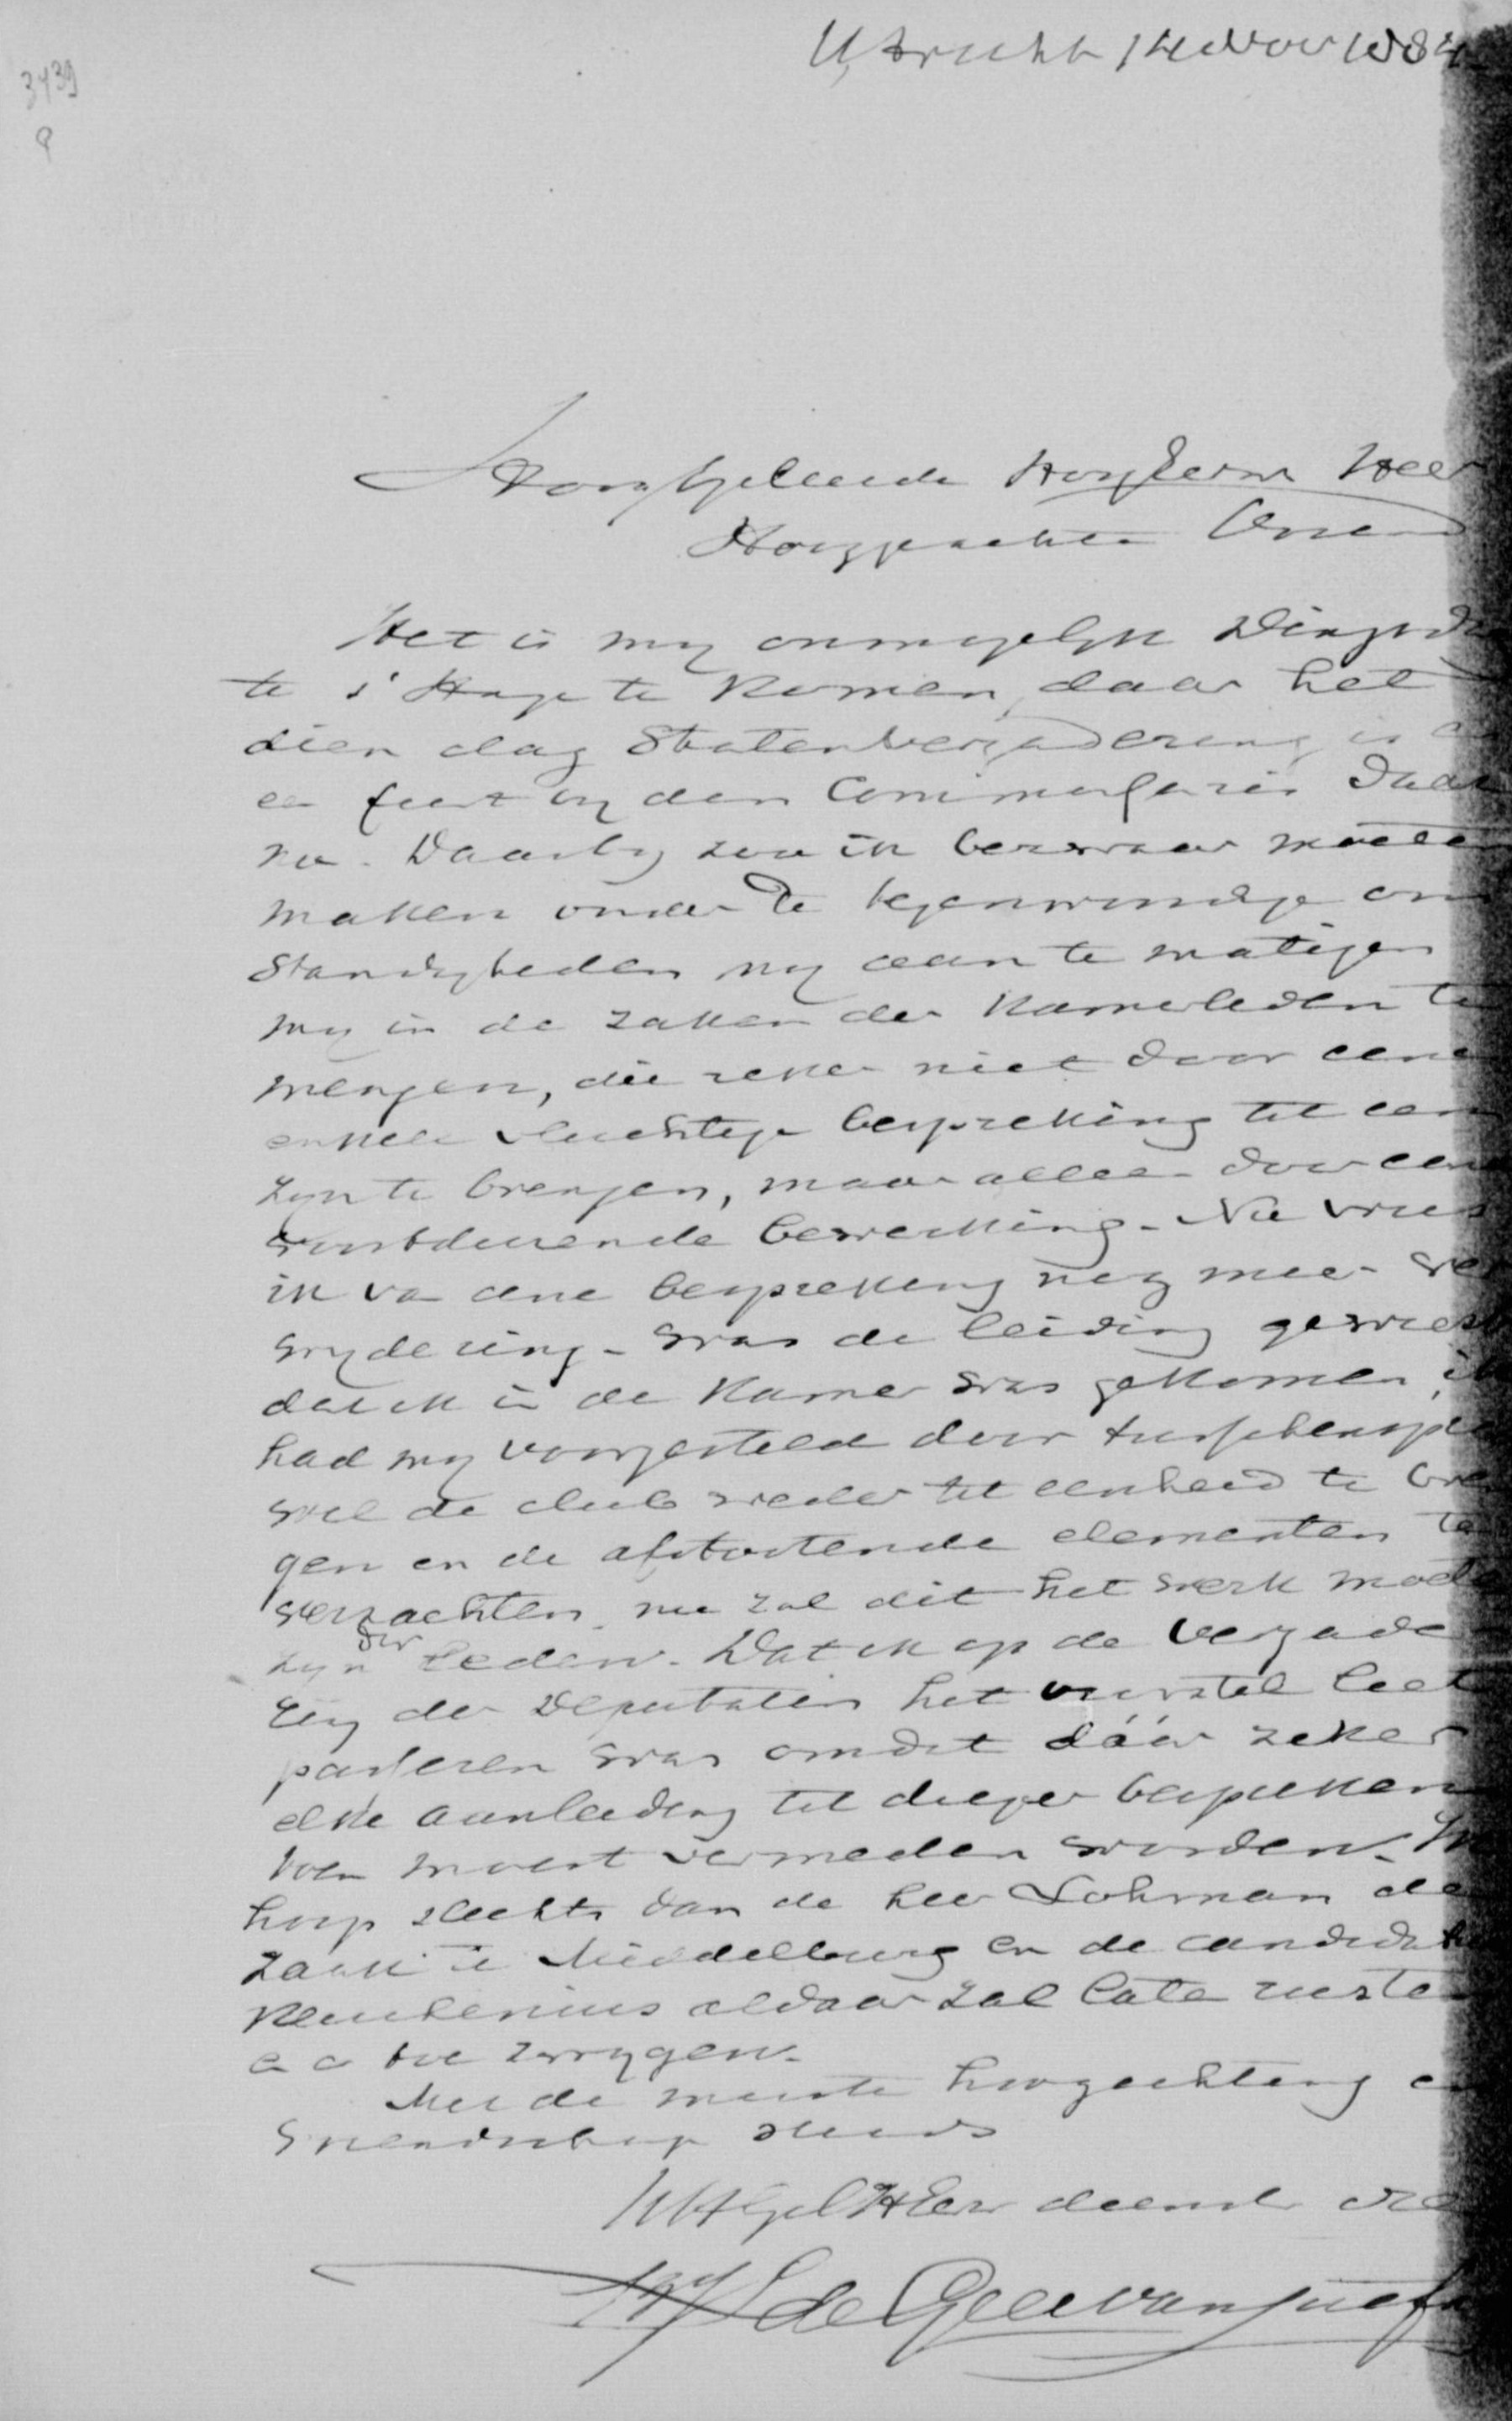 Utrecht 14 Nov 1884
3439
9
Hooggeleerde HoogEerw Heer
Hooggeachte
Het is my onmogelyk Dingsda
te s' Hage te komen, daar het
dien dag Statenvergadering is
een feest by den Commissaris
nu. Daarby zou ik bezwaar moeten
maken onder de tegenwoordige om
standigheden my aan te matigen
my in de zaken der Kamerleden te
mengen, die zeker niet door eene
enkele vluchtige bespreking tot een
zyn te brengen, maar alleen door eene
voortdurende bewerking. Nu vrees
ik van eene bespreking nog meer ver
wydering. Was de leiding geweest
dat ik in de Kamer was gekomen, ik
had my voorgesteld door
wel de club weder tot eenheid te bren
gen en de afstootende elementen te
verzachten, nu zal dit het werk moete
zyn der leden. Dat ik op de vergade
ring der Deputaten het voorstel liet
passeren was omdat dáár zeker
elke aanleiding tot dieper bespreken
moest vermeden worden.
hoop slechts dan de heer Lohman de
zaak te Middelburg en de candidatuur
Keuchenius aldaar zal laten rusten
en doodzwygen.
Met de meeste hoogachting en
vriendschap steeds
UHgel HEerw dienstv
de Geer van Jutfa